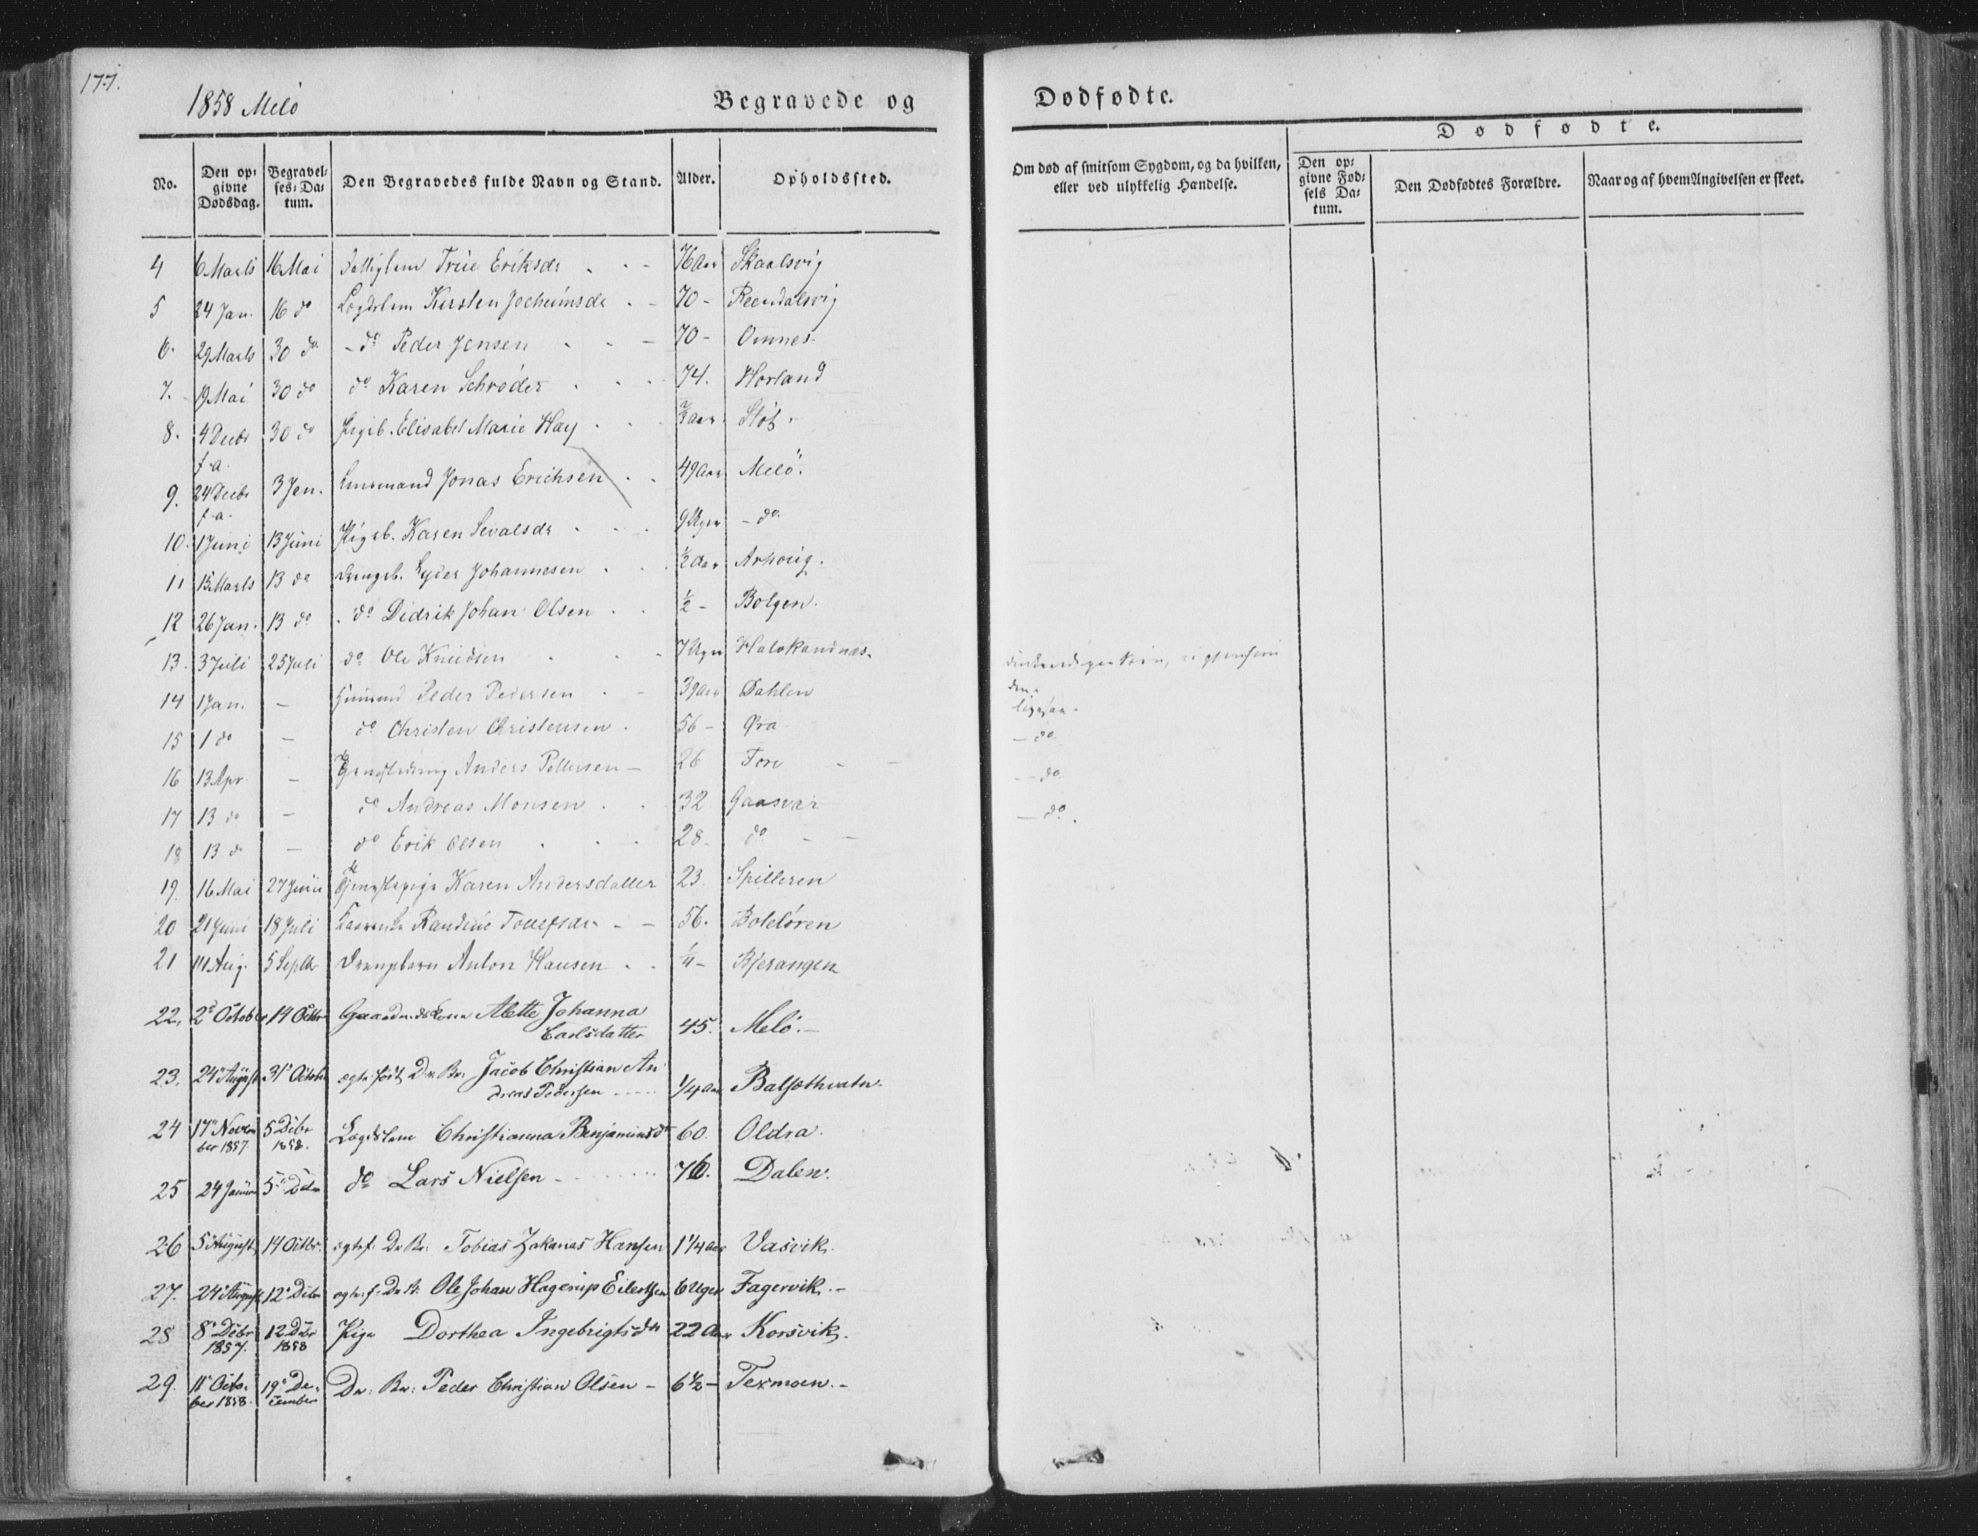 177.
1858 Melö
Begravede og
Dødfødte.
Dødfødte.
No.
Den opgivne Dødsdag.
Begravelses-Datum.
Den Begravedes fulde Navn og Stand.
Alder.
Opholdssted.
Om død af smitsom Sygdom, og da hvilken, eller ved ulykkelig Hændelse.
Den opgivne Fødsels Datum.
Den Dødfødtes Forældre.
Naar og af hvem Angivelsen er skeet.
4 6 Marts 16 Mai Trine Eriksdr 76 Aar Skaalsvig
5 24 Jan. 16 do Lægdslem Kirsten Jochimsdr 70 - Reendalsvig
6. 29 Marts 30 do - do Peder Jensen 70 - Omnes
7. 9 Mai 30 do do Karen Schrøder 74. Horland
8. 4 Decbr f.a. 30 do Pigeb. Elisabet Marie Hay Aar Støt
9. 24 Decbr f.a. 3 Jan. Jonas Erichsen 49 Aar Melö.
10. 1 Juni 13 Juni Pigeb. Karen Sevalsdr 9 Uger - do
11 15 Marts 13 do Drengb. Eyler Johannesen ½ Aar Arhovig.
12 26 Jan. 13 do do Didrik Johan Olsen ½ - Bolgen.
13. 3 Juli 25 Juli do Ole Knudsen 7 Uger Halskandnæs
14 1 Jan. - Peder Pedersen 39 Aar Dahlen
15 1 do - do Christen Christensen 56 - Øra - do
16 13 Apr - Anders Pettersen - 26 Fore - do
17 13 do - do Andreas Monsen 32 Gaasvær - do.
18 13 do - do Erik Olsen 28 do
19. 16 Mai 27 Juni Karen Andersdatter 23. Spilleren
20 21 Juni 18 Juli Randine 56. Boleløren
21 14 Aug. 5 Septbr Drengebarn Anton Hansen ¼ - Bjerangen
22, 2d October 14 Octbr Gaardmdskone Alette Johanna
Carlsdatter 45. Melö. -
23. 24 August 31 Octobr ægte født Dr. Br. Jacob Christian An
dreas Pedersen 1/4 Aar
24 17 Novem
ber 1857 5 Decbr 1858. Lægdslem Christianna Benjaminsdr 60. Oldra.
25 24 Januar 5 Dcbr do Lars Nielsen 76. Dalen.
26 5 August 14 Octbr. ægtef. Dr. Br. Tobias Zakarias Hansen 1 1/4 Aar Vasvik.
27. 24 August 12 Decbr ægte f. Dr. Br. Ole Johan Hagerup Eilertsen 6 Uger Fagervik. -
28 8 Decbr 1857. 12 Decbr 1858 Pige Dorthea Ingebrigtsdr 22 Aar Korsvik.
29. 11 Octo-
ber 1858. 19 De-
cember Dr. Br. Peder Christian Olsen - 6 ½ - Texmoen. -